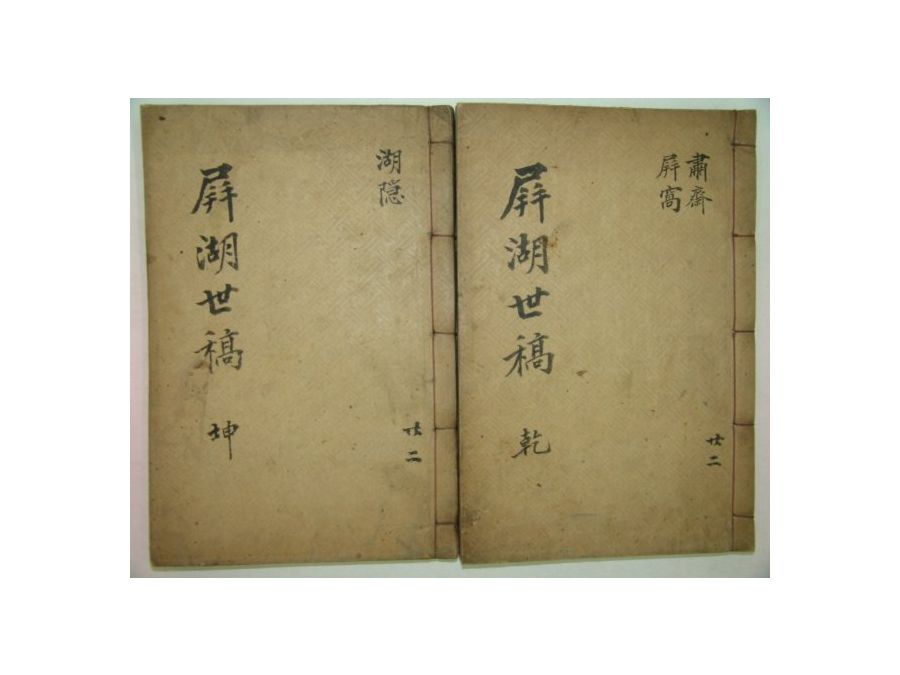 肅齋
屛窩
共二
屛湖世稿 乾
湖隱
共二
屛湖世稿 坤